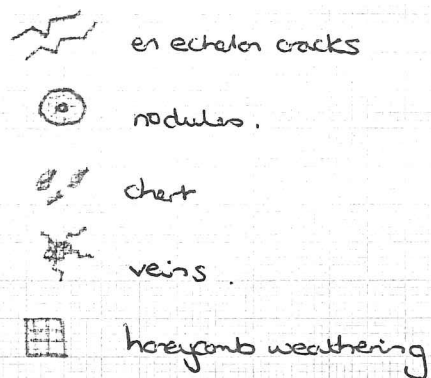 en echelon cracks
nodules.
chert
veins.
honeycomb weathering